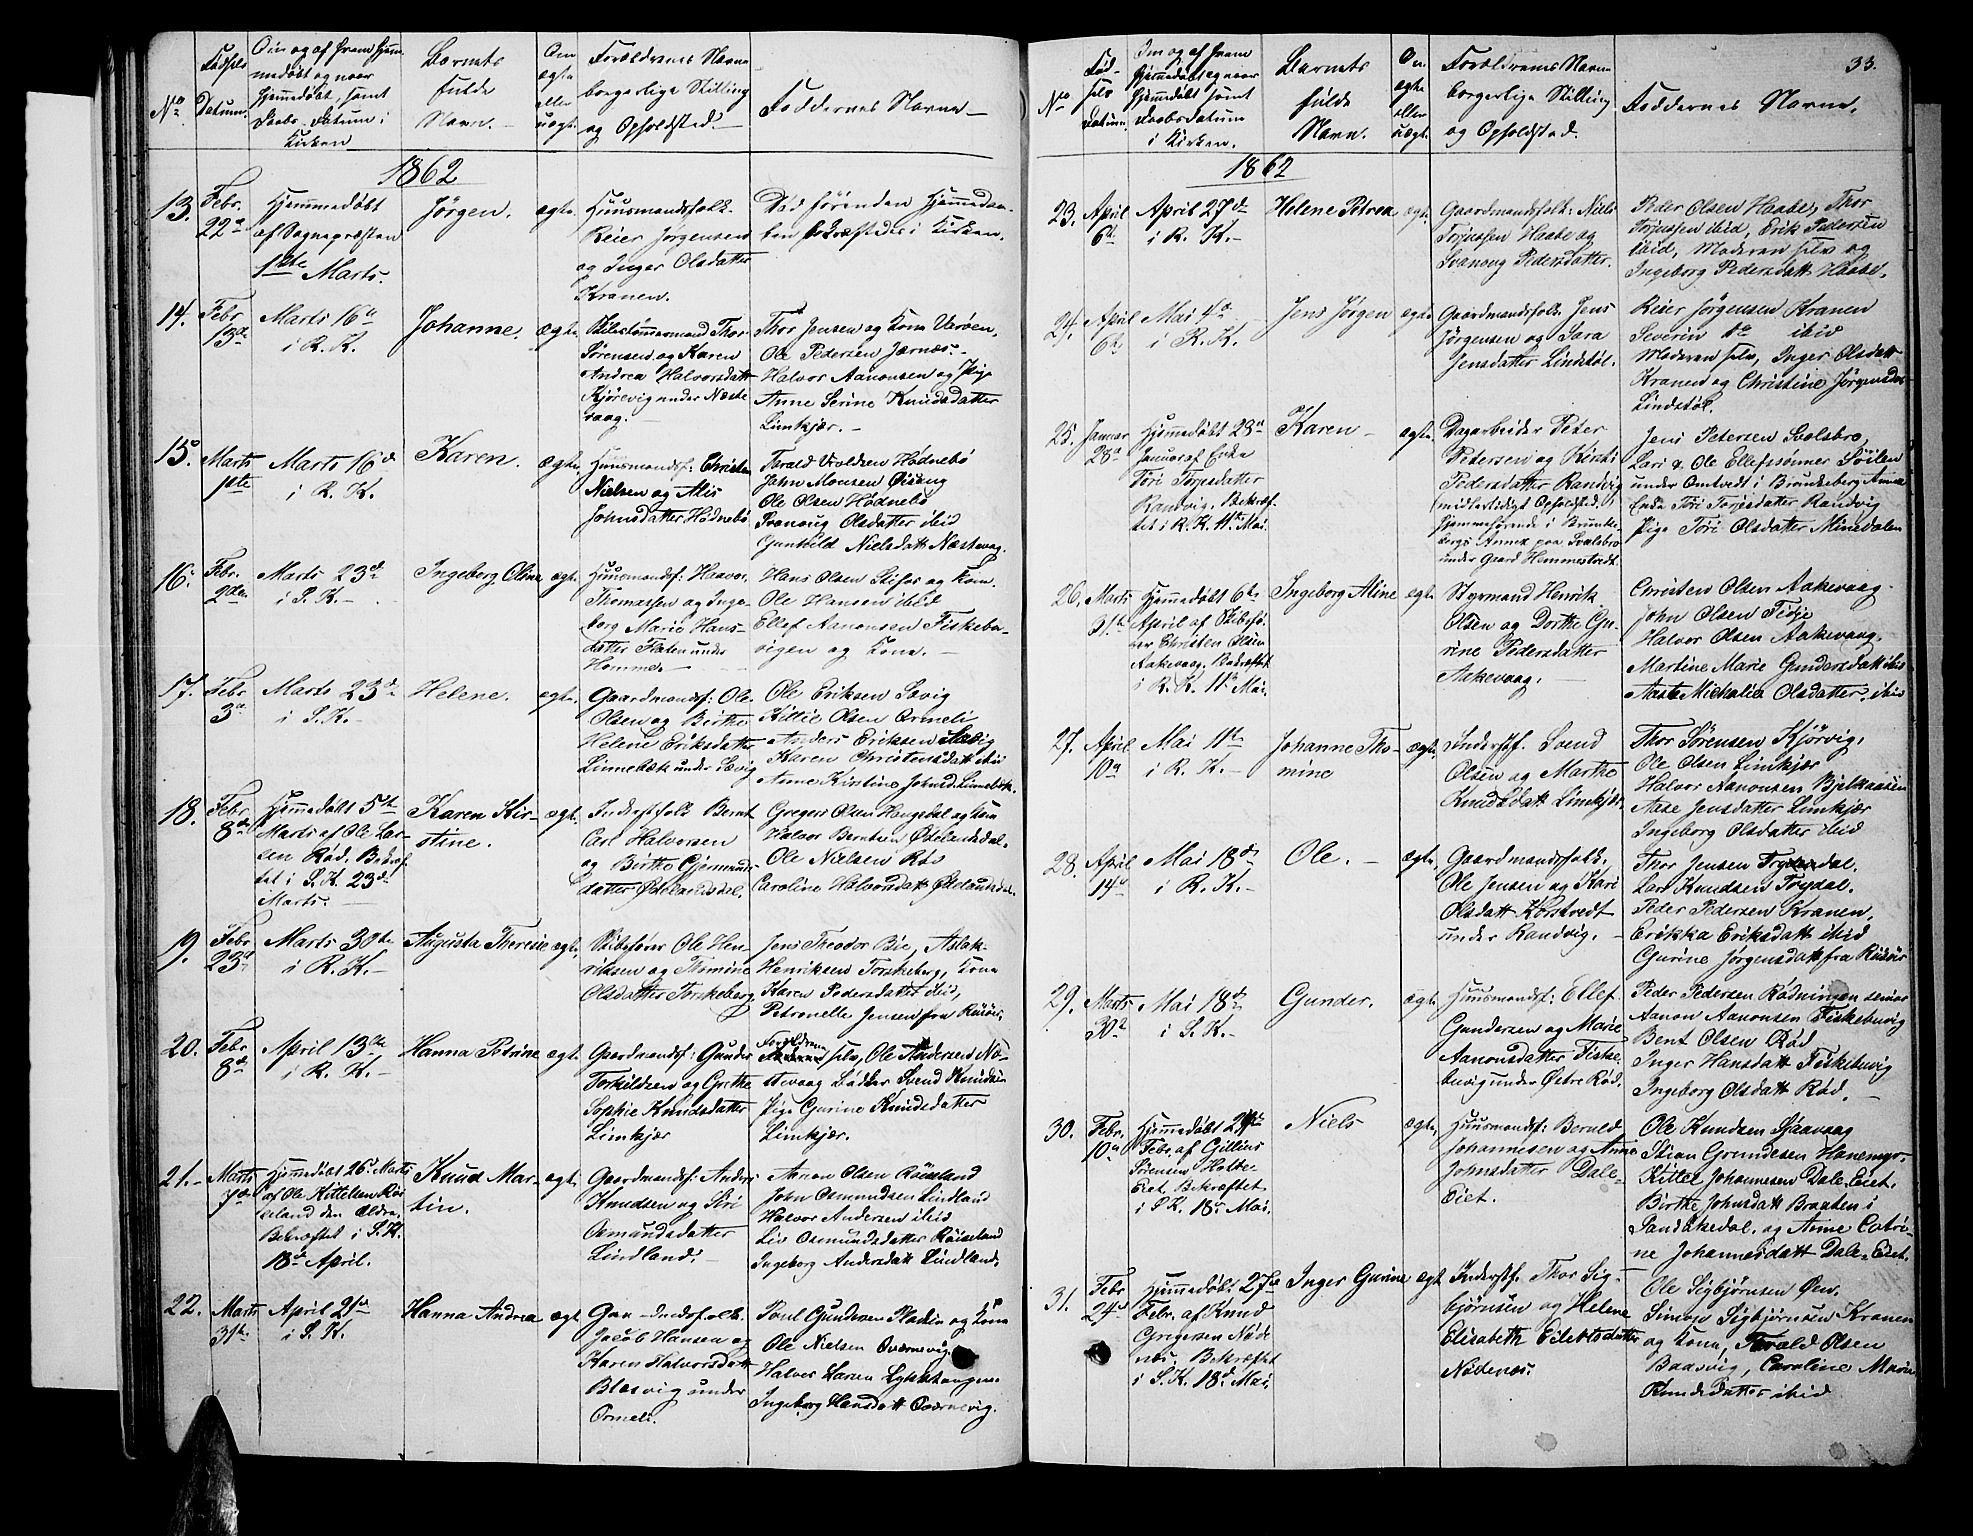 No
Fødsels
Datum.
Om og af hvem hjem-
medøbt og naar
hjemmedøbt, samt
Daabs-Datum i
Kirken
Barnets
fulde
Navn.
Om
ægte
eller
uægt.
Forældrenes Navne
borgerlige Stilling
og Opholdsted.
Faddernes Navne
1862
13. Febr. 22d
Hjemmedøbt
af Sognepræsten
1ste Marts.
Jörgen.
ægte.
Huusmandsfolk.
Reier Jörgensen
og Inger Olsdatter
Kranen.
Död förenden Hjemmedaa-
ben bekræftedes i Kirken.
14. Febr. 13de
Marts 16d
i R. K.
Johanne.
ægte.
Skibstømmermand Thor
Sörensen og Karen
Andrea Halvorsdatt
Kjörvig under Næste
vaag.
Thor Jensen og Kone
Ole Pedersen Jærnæs.
Halvor Aanonsen og Pige
Anne Serine Knudsdatter
Limkjær.
15. Marts 1ste
Marts 16d
i R. K.
Karen.
ægte.
Huusmandsf: Christen
Nielsen og Alis
Johnsdatter Hödnebö
Tarald Hödnebö
John Monsen
Ole Olsen Hödnebö
Svanoug Olsdatter ibid
Gunhild Nielsdatt Næstevaag.
16. Febr. 2den
Marts 23d
i S. K.
Ingeborg Oline
ægte.
Huusmandsf: Haavor
Thomassen og Inge-
borg Marie Hans-
datter Flaten under
Homme.
Hans Olsen og Kone
Ole Hansen ibid
Ellef Aanonsen Fiskebu-
vigen og Kone.
17. Febr. 3d
Marts 23d
i S. K.
Helene.
ægte.
Gaardmandsf: Ole
Olsen og Birthe
Helene Eriksdatter
Linnebæk under Sævig
Ole Eriksen Sævig
Kittil Olsen Ormeli
Anders Eriksen Sævig
Karen Christensdatt ibid
Anne Kirstine Johnsd. Linnebæk.
18. Febr. 8de
Hjemmedöbt 5te
Marts af Ole Lar-
sen Röd. Bekræf-
tet i S. K. 23d
Marts.
Karen Kir-
stine.
ægte.
Inderstfolk Bernt
Carl Halvorsen
og Birthe Gjermunds
datter Öskelandsdal.
Gregers Olsen og Kone
Halvor Berntsen Öskelandsdal.
Ole Nielsen Röd
Caroline Halvorsdatt Öskelandsdal.
19. Febr 23d
Marts 30te
i R. K.
Augusta Therese
ægte.
Skibsförer Ole Hen-
riksen og Thomine
Olsdatter Torskeberg
Jens Theodor Bie, Aslak
Henriksen Torskeberg, Kone
Karen Pedersdatter ibid,
Petronelle Jensen fra Risöer.
20. Febr. 8de
April 13de
i R. K.
Hanna Petrine
ægte
Gaardmandsf: Gunder
Torkildsen og Grethe
Sophie Knudsdatter
Limkjær
Forældrene selv, Ole Andersen Næ-
stevaag Bödker Svend Knudsen
Pige Gurine Knudsdatter
Limkjær.
21. Marts 7de
Hjemmedöbt 26d Marts
af Ole Kittelsen Röi-
seland den Ældre.
Bekræftet i S. K.
18d April.
Knud Mar-
tin.
ægte.
Gaardmandsf: Anders
Knudsen og Siri
Osmundsdatter
Lindland.
Aanon Olsen Röiseland
John Osmundsen Lindland
Halvor Andersen ibid
Liv Osmundsdatter Röiseland
Ingeborg Andersdatt Lindland.
22. Marts 31te
April 21d
i S. K.
Hanna Andrea
ægte.
Gaardmandsfolk.
Jacob Hansen og
Karen Halvorsdatt
Blæsvig under
Ormeli.
Poul Gundersen og Kone
Ole Nielsen Qværnevig.
Halvor Larsen Lykkehaugen
Ingeborg Hansdatt Qværnevig.
33.
No
Föd-
sels
Datum.
Om og af hvem
hjemmedöbt og naar
hjemmedöbt samt
Daabsdatum
i Kirken.
Barnets
fulde
Navn.
Om
ægte
eller
uægte
Forældrenes Navne
borgerlige Stilling
og Opholdsted.
Faddernes Navne.
1862
23. April 6te
April 27d
i R. K.
Helene Petrea
ægte.
Gaardmandsfolk: Niels
Terjussen Haabe og
Svanoug Pedersdatter.
Peder Olsen Haabe, Thor
Terjussen ibid, Erik Pedersen
ibid, Moderen selv og
Ingeborg Pedersdatt Haabe.
24. April 6te
Mai 4de
i R. K.
Jens Jörgen
ægte
Gaardmandsfolk Jens
Jörgensen og Sara
Jensdatter Lindstöl.
Reier Jörgensen Kranen
Severin do ibid
Moderen selv, Inger Olsdatt
Kranen og Christine Jörgensdat
Lindstöl.
25. Januar 28d
Hjemmedöbt 23d
Januar af Enke
Töri Terjesdatter
Randvig. Bekræf-
tet i R. K. 11te Mai.
Karen
ægte.
Dagarbeider Peter
Petersen og Kirsti
Pedersdatter Randvig
midlertidigt Opholdsted.
Hjemmehörende i Brunke-
bergs Annex paa Svalsbro
under Gaard Hemmestvedt.
Jens Petersen Svalsbro,
Lars & Ole Ellefssönner
under Omtvedt i Brunkeberg Annex
Enke Töri Terjesdatter Randvig
Pige Töri Olsdatter Minsdalen
26. Marts 31te
Hjemmedöbt 6te
April af Skibsfö-
rer Christen Olsen
Aakevaag. Bekræftet
i R. K. 11te Mai.
Ingeborg Aline
ægte
Styrmand Henrik
Olsen og Dorthe Gu-
rine Pedersdatter
Aakevaag.
Christen Olsen Aakevaag
John Olsen
Halvor Olsen Aakevaag.
Martine Marie Gundersdatt ibid
Aaste Michalia Olsdatter. ibid
27. April 10d
Mai 11te
i R. K.
Johanne Tho-
mine
ægte
Inderstf. Svend
Olsen og Marthe
Knudsdatt Limkjær
Thor Sörensen Kjörvig.
Ole Olsen Limkjær
Halvor Aanonsen
Aase Jensdatter Limkjær
Ingeborg Olsdatter ibid
28. April 14d
Mai 18d
i R. K.
Ole.
ægte.
Gaardmandsfolk.
Ole Jensen og Kari
Olsdatt Korstvedt
under Randvig.
Thor Jensen Trydal.
Lars Knudsen Trydal.
Peder Pedersen Kranen,
Erikka Eriksdatt ibid
Gurine Jörgensdatt fra Risöer
29. Marts 30te
Mai 18d
i S. K.
Gunder.
ægte
Huusmandsf: Ellef
Gundersen og Marie
Aanonsdatter Fiske-
buvig under Östre Röd.
Peder Pedersen Rödningen senior
Aanon Aanonsen Fiskebuvig
Bent Olsen Röd
Inger Hansdatt Fiskebuvig
Ingeborg Olsdatt Röd.
30. Febr. 10d
Hjemmedöbt
Febr. af Gillius
Sörensen Holte-
Eiet. Bekræftet
i S K. 18d Mai.
Niels
ægte.
Huusmandsf: Berulf
Johannesen og Anne
Johnsdatter Dale-
Eiet.
Ole Knudsen
Stian Hanemyr.
Kittel Johannesen Dale-Eiet.
Birthe Johnsdatt Braaten i
Sandökedal. og Anne Catri-
ne Johannesdatt Dale-Eiet.
31. Febr 24d
Hjemmedöbt 27de
Febr. af Knud
Gregersen Nöde-
næs. Bekræftet
i S. K. 18d Mai.
Inger Gurine
ægt
Inderstf. Thor Sig-
björnsen og Helene
Elisabeth Eilertsdatter
Nödenæs.
Ole Sigbjörnsen
Simon Sigbjörnsen Kranen
og Kone, Tarald Olsen
Baasvig, Caroline Maren
Knudsdatter ibid